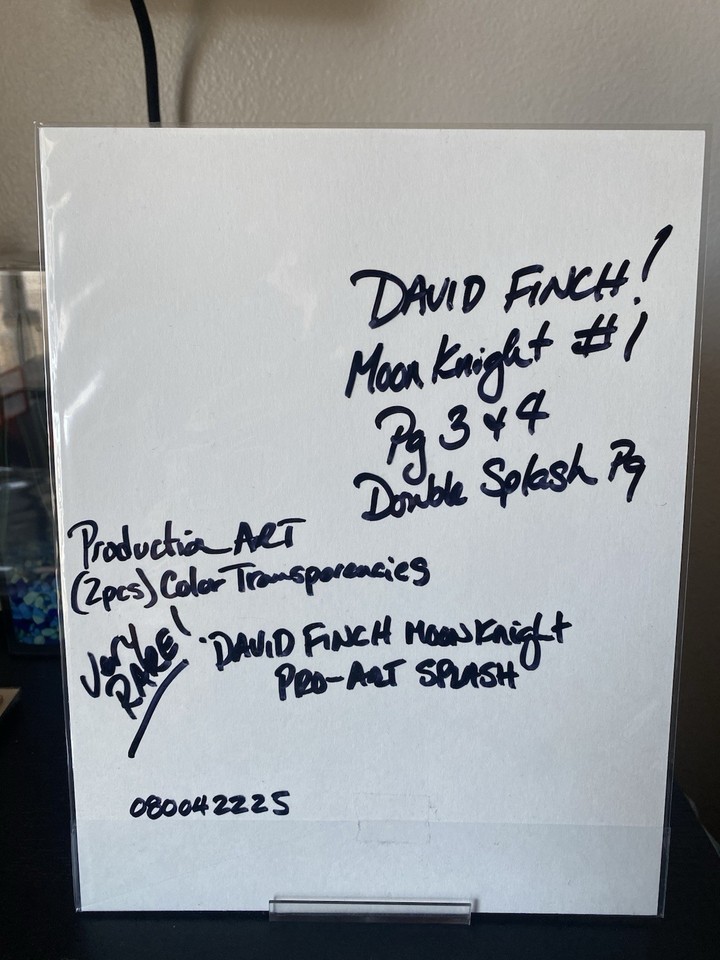 DAVID FINCH!
Moon Knight #1
Pg 3 & 4
Double Splash Pg
Production ART
(2pcs) Color Transparencies
Very RARE!
DAVID FINCH MOON KNIGHT
PRO-ART SPLASH
080042225